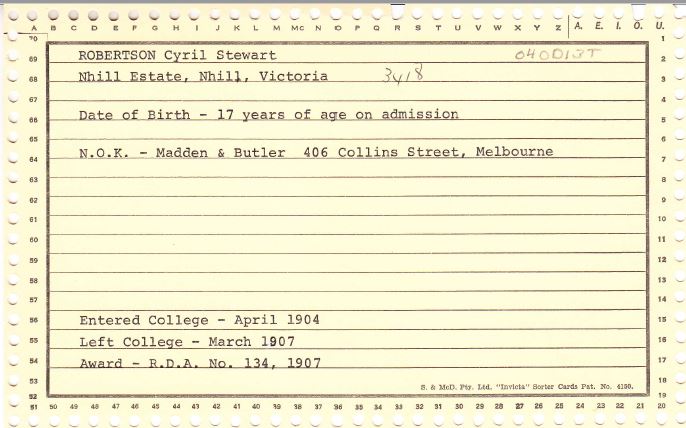 A B C D E F G H I J K L M Mc N O P Q R S T U V W X Y Z A. E. I. O. U.
70 1
ROBERTSON Cyril Stewart
69 2
Nhill Estate, Nhill, Victoria 3418
68 3
67 4
Date of Birth - 17 years of age on admission
66 5
65 6
N.O.K. - Madden & Butler 406 Collins Street, Melbourne
64 7
63 8
62 9
61 10
60 11
59 12
58 13
57 14
Entered College - April 1904
56 15
Left College - March 1907
55 16
Award - R.D.A. No. 134, 1907
54 17
S. & McD. Pty. Ltd. "Invicta" Sorter Cards Pat. No. 4150.
53 18
52 19
51 50 49 48 47 46 45 44 43 42 41 40 39 38 37 36 35 34 33 32 31 30 29 28 27 26 25 24 23 22 21 20